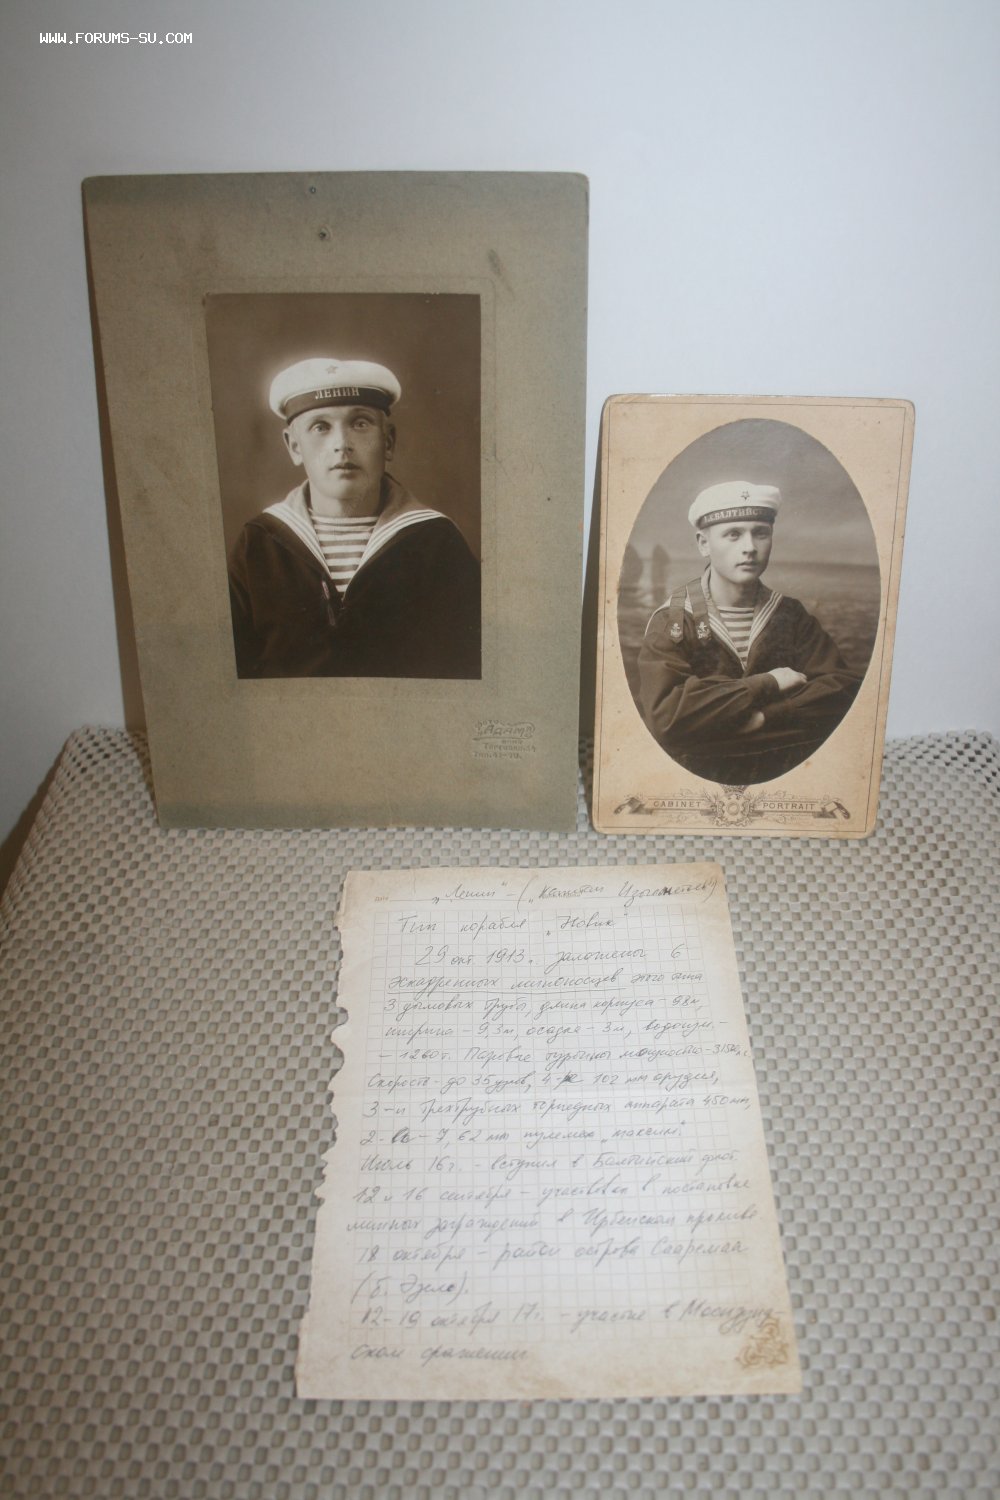 WWW.FORUMS-SU.COM
ЛЕНИН
БАЛТИЙСК
АДАМ
CABINET PORTRAIT
„Ленин" – („Капитан Изыльметьев")
Тип корабля „Новик"
29 окт. 1913г. заложены 6
эскадренных миноносцев этого типа
3 дымовых трубы, длина корпуса – 98м,
ширина – 9,3м, осадка – 3м, водоизм. –
– 1260т. Паровые турбины мощность –
Скорость – до 35 узлов, 4 – 102 мм орудия,
3-и трехтрубных торпедных аппарата 450 мм,
2 – 7,62 мм пулемета „максим".
Июль 16г. – вступил в Балтийский флот.
12 и 16 сентября – участвовал в постановке
минных заграждений в Ирбенском проливе.
18 октября – район острова Сааремаа
(б. Эзель).
12-19 октября 17г. – участие в Моонзунд-
ском сражении